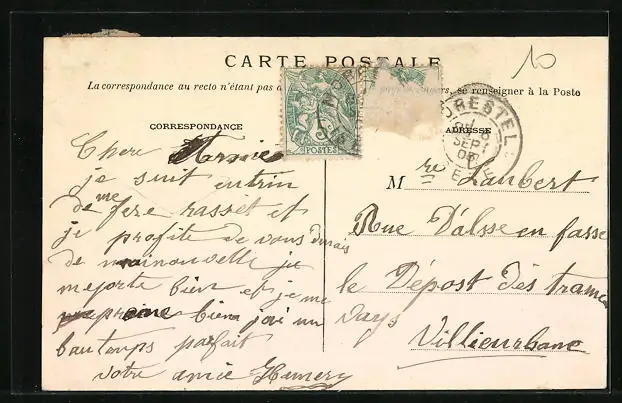 10
CARTE POSTALE
La correspondance au recto n'étant pas a se renseigner à la Poste
CORRESPONDANCE
ADRESSE
POSTES
ORESTEL
SEPT
05
Chere
je suit entrin
de me fere rasset et
je profite de vous donais
de mainouvelle je
me porte bien et je me
bien jai un
bautemps parfait
votre amie Hemery
Mre Lambert
Rue D'alsse en fasse
le Dépost dès trame
ways
Villieurbane